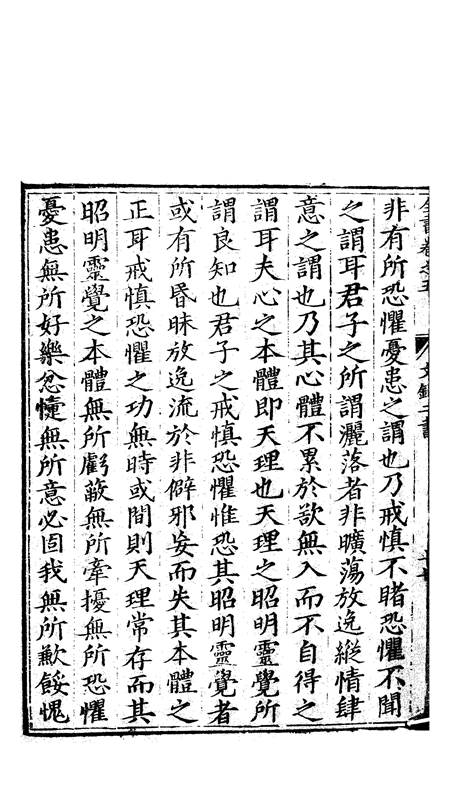 全書卷之五 文錄二書
非有所恐懼憂患之謂也乃戒慎不睹恐懼不聞
之謂耳君子之所謂灑落者非曠蕩放逸縱情肆
意之謂也乃其心體不累於欲無入而不自得之
謂耳夫心之本體即天理也天理之昭明靈覺所
謂良知也君子之戒慎恐懼惟恐其昭明靈覺者
或有所昏昧放逸流於非僻邪妄而失其本體之
正耳戒慎恐懼之功無時或間則天理常存而其
昭明靈覺之本體無所虧蔽無所牽擾無所恐懼
憂患無所好樂忿懥無所意必固我無所歉餒愧